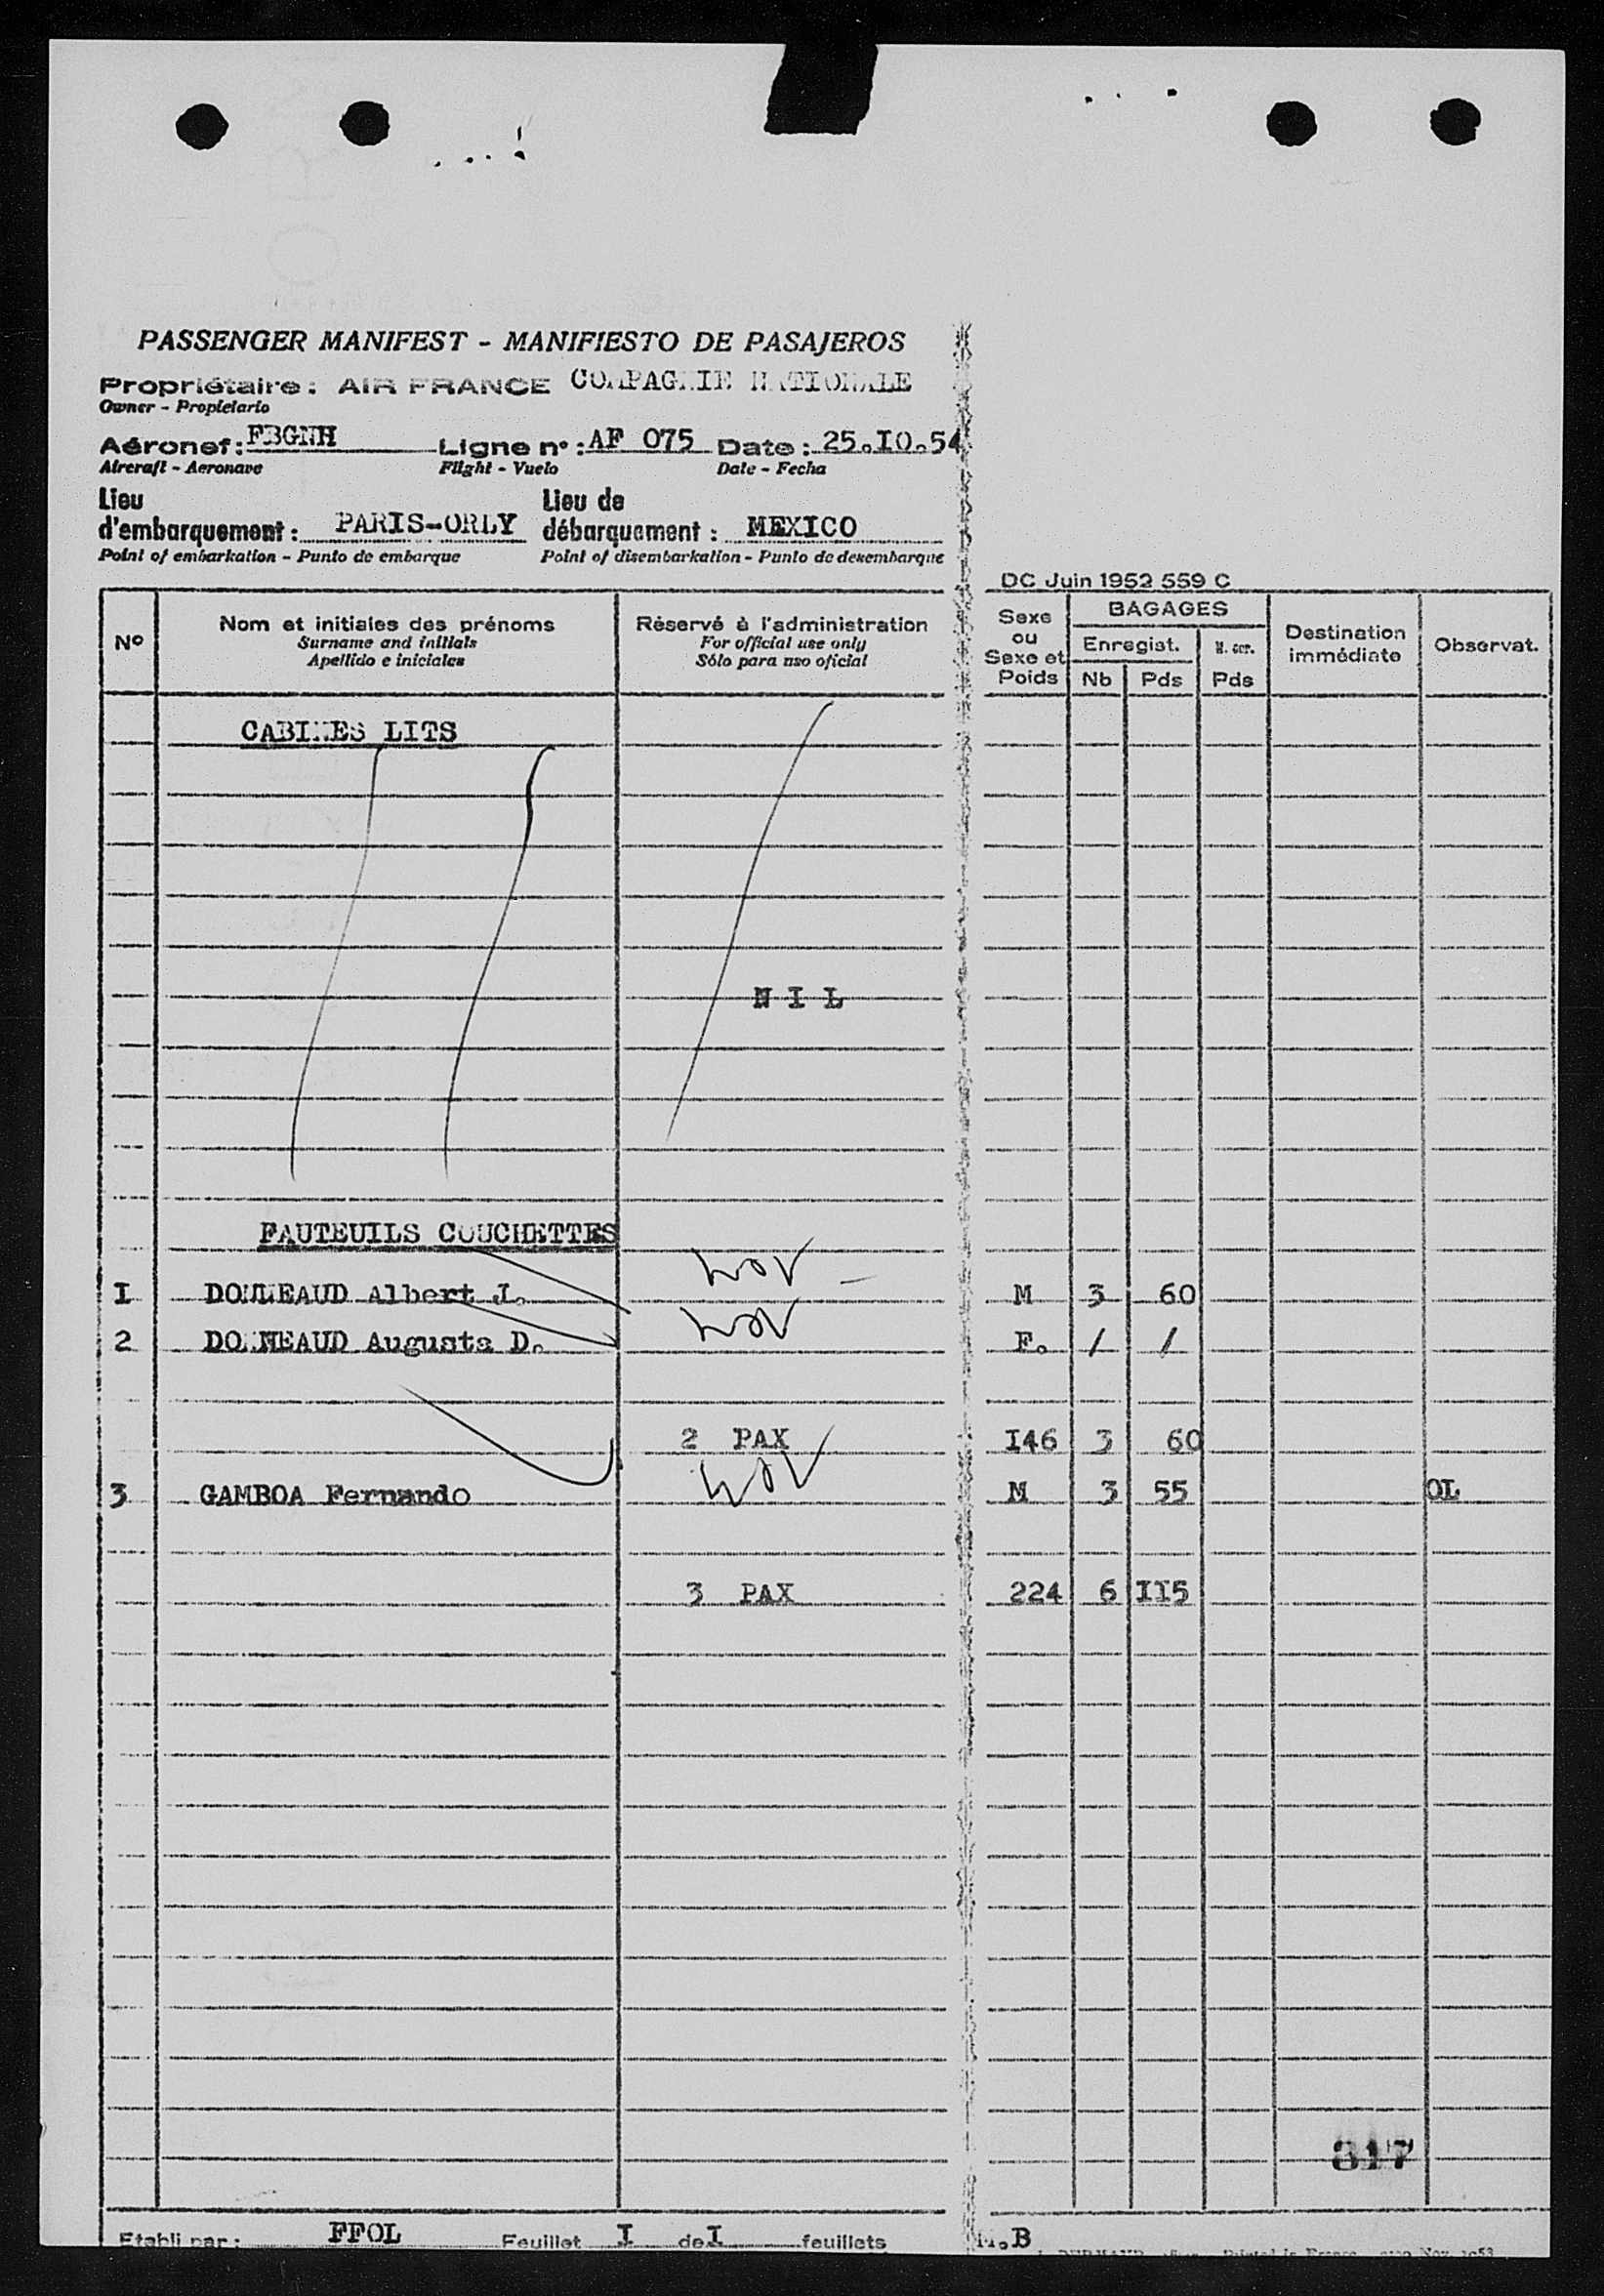 PASSENGER MANIFEST - MANIFIESTO DE PASAJEROS
Propriétaire : AIR FRANCE COMPAGNIE NATIONALE
Owner - Propietario
Aéronef : FBGNH Ligne n° : AF 075 Date : 25.IO.54
Aircraft - Aeronave Flight - Vuelo Date - Fecha
Lieu d'embarquement : PARIS-ORLY Lieu de débarquement : MEXICO
Point of embarkation - Punto de embarque Point of disembarkation - Punto de desembarque
DC Juin 1952 559 C
N° Nom et initiales des prénoms Réservé à l'administration Sexe ou Sexe et Poids BAGAGES Destination immédiate Observat.
Surname and initials For official use only Enregist.
Apellido e iniciales Sólo para uso oficial Nb Pds Pds
CABINES LITS
N I L
FAUTEUILS COUCHETTES
I DONNEAUD Albert J. M 3 60
2 DONNEAUD Augusta D. F. / /
2 PAX I46 3 60
3 GAMBOA Fernando M 3 55 OL
3 PAX 224 6 II5
317
Etabli par : FFOL Feuillet I de I feuillets